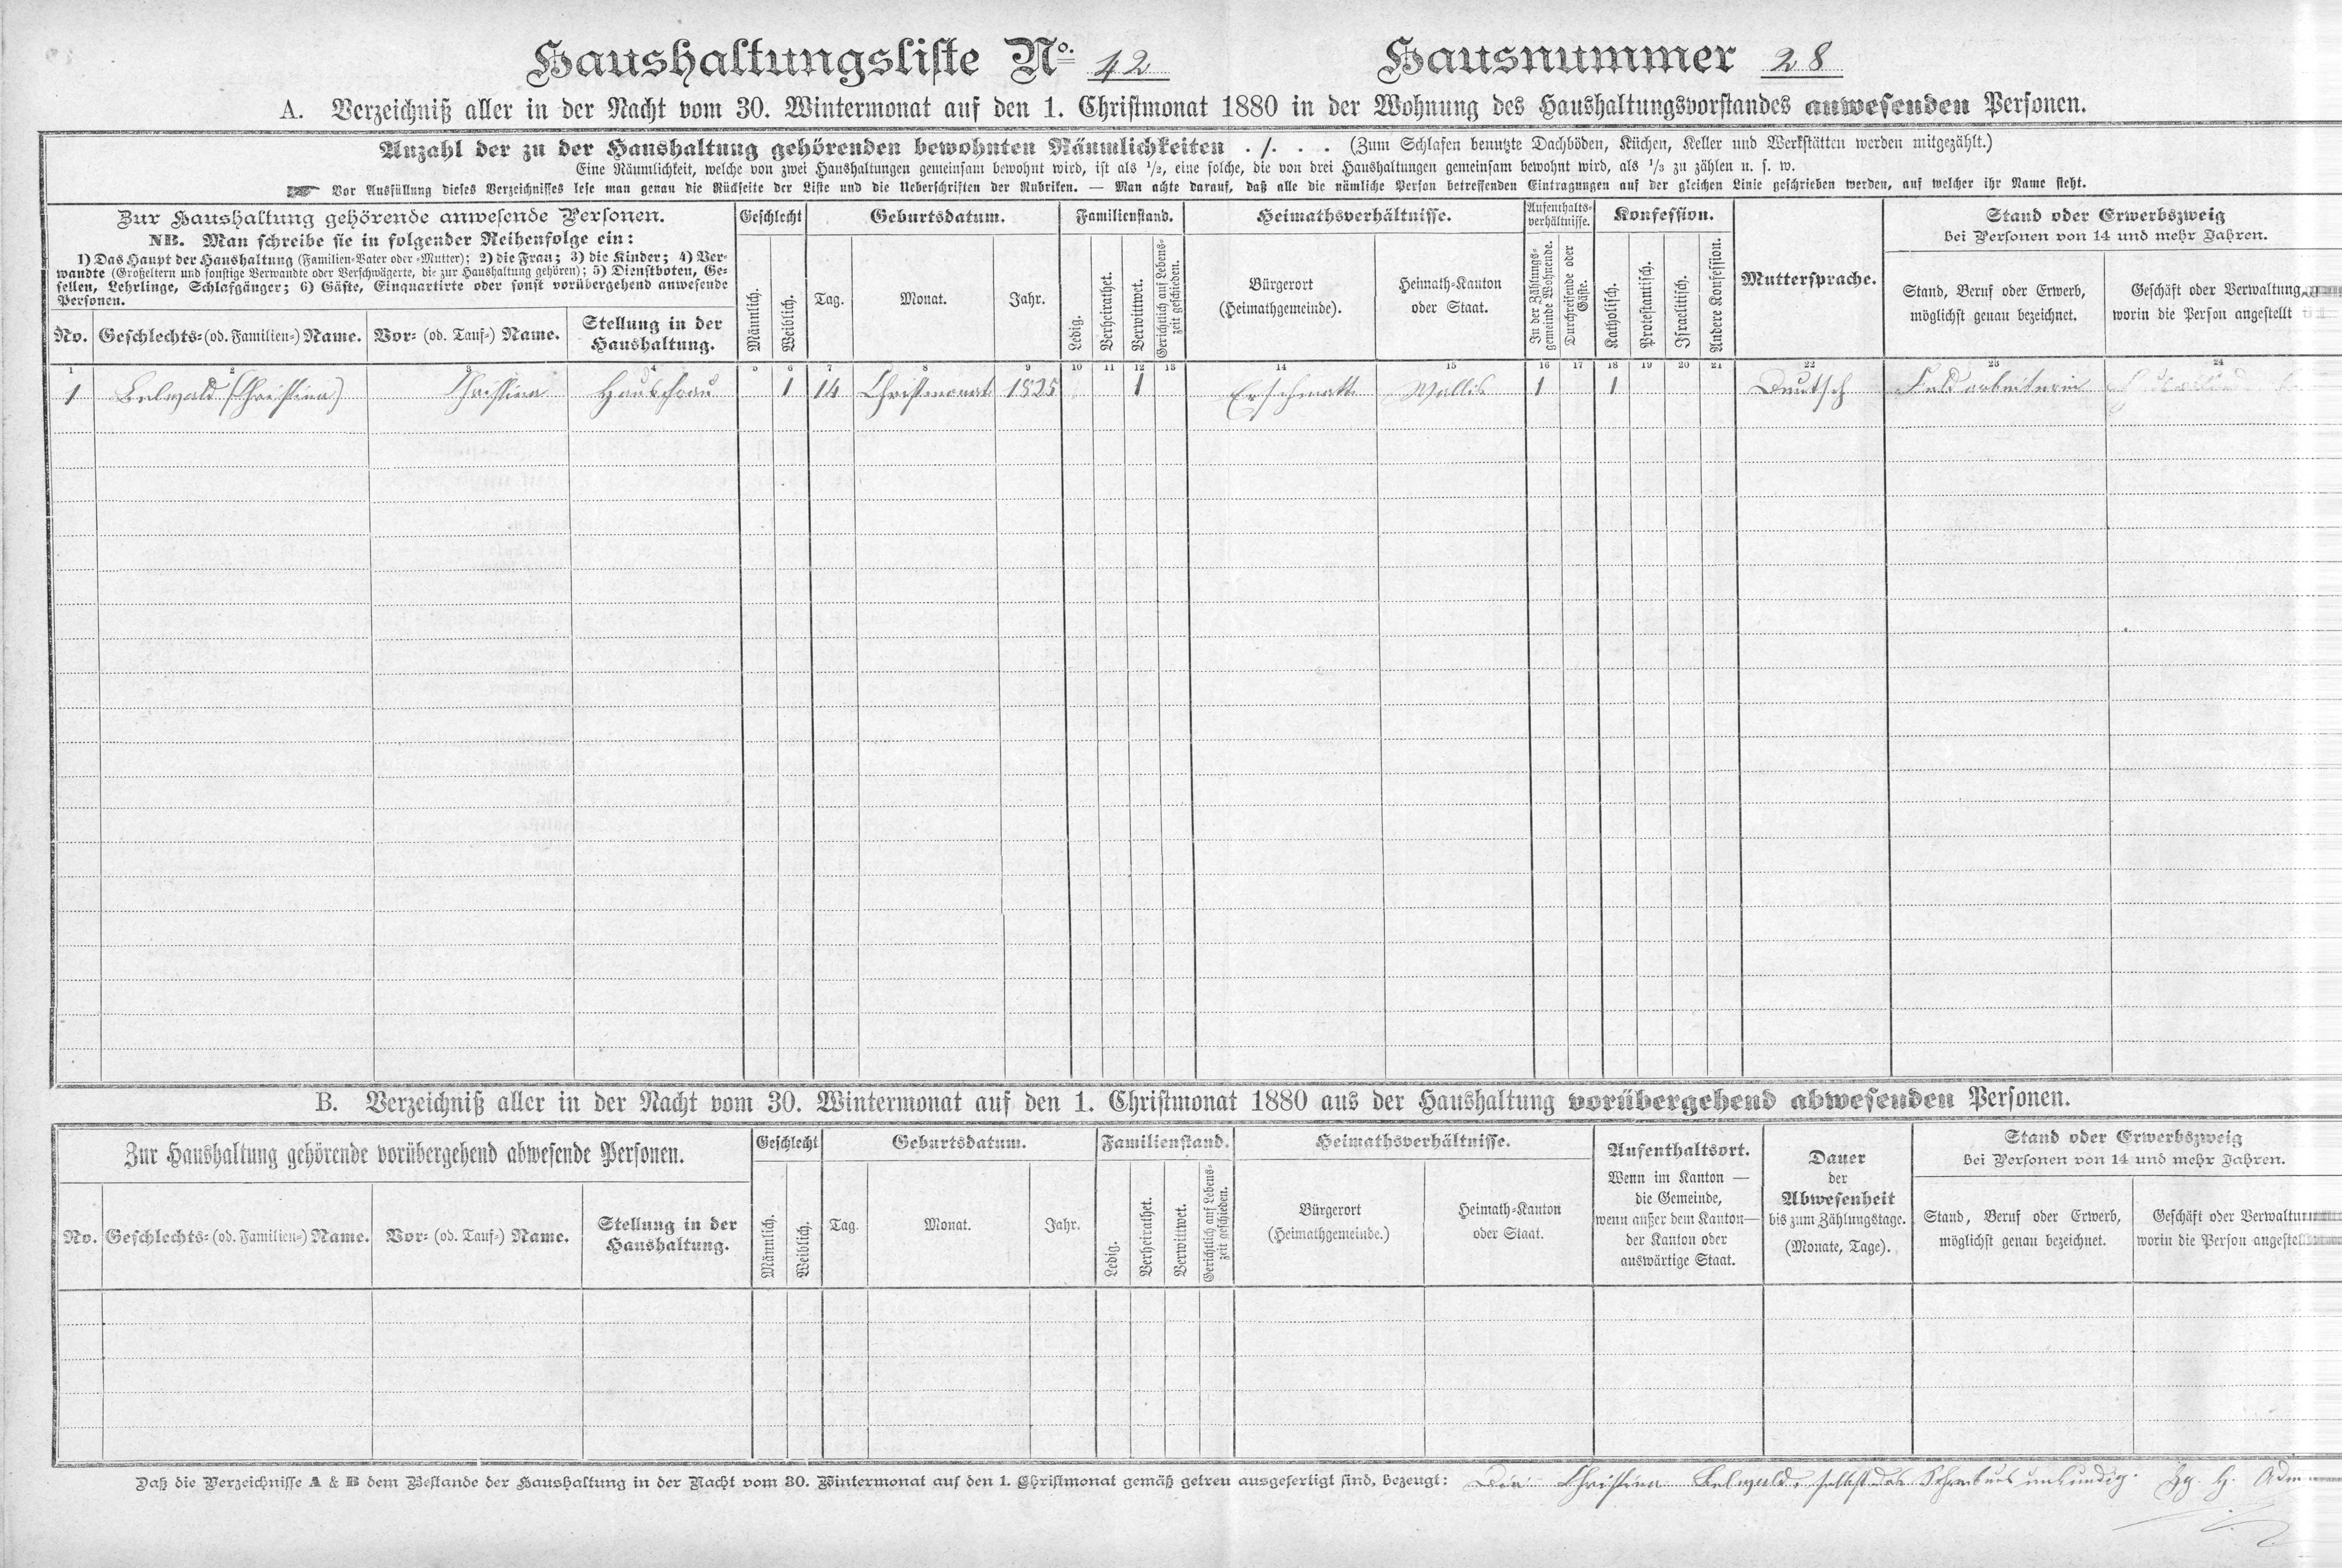 Haushaltungsliste No. 42 Hausnummer 28
A. Verzeichniß aller in der Nacht vom 30. Wintermonat auf den 1. Christmonat 1880 in der Wohnung des Haushaltungsvorstandes anwesenden Personen.
Anzahl der zu der Haushaltung gehörenden bewohnten Räumlichkeiten . 1. . . (Zum Schlafen benutzte Dachböden, Küchen, Keller und Werkstätten werden mitgezählt.)
Eine Räumlichkeit, welche von zwei Haushaltungen gemeinsam bewohnt wird, ist als 1/2, eine solche, die von drei Haushaltungen gemeinsam bewohnt wird, als 1/3 zu zählen u. s. w.
☛ Vor Ausfüllung dieses Verzeichnisses lese man genau die Rückseite der Liste und die Ueberschriften der Rubriken. — Man achte darauf, daß alle die nämliche Person betreffenden Eintragungen auf der gleichen Linie geschrieben werden, auf welcher ihr Name steht.
Zur Haushaltung gehörende anwesende Personen.
NB. Man schreibe sie in folgender Reihenfolge ein:
1) Das Haupt der Haushaltung (Familien-Vater oder -Mutter); 2) die Frau; 3) die Kinder; 4) Ver-
wandte (Großeltern und sonstige Verwandte oder Verschwägerte, die zur Haushaltung gehören); 5) Dienstboten, Ge-
sellen, Lehrlinge, Schlafgänger; 6) Gäste, Einquartirte oder sonst vorübergehend anwesende
Personen.
No. Geschlechts- (od. Familien-) Name. Vor- (od. Tauf-) Name. Stellung in der
Haushaltung.
Geschlecht
Männlich. Weiblich.
Geburtsdatum.
Tag. Monat. Jahr.
Familienstand.
Ledig. Verheirathet. Verwittwet. Gerichtlich auf Lebens-
zeit geschieden.
Heimathsverhältnisse.
Bürgerort
(Heimathgemeinde).
Heimath-Kanton
oder Staat.
Aufenthalts-
verhältnisse.
In der Zählungs-
gemeinde Wohnende.
Durchreisende oder
Gäste.
Konfession.
Katholisch. Protestantisch. Israelitisch. Andere Konfession.
Muttersprache.
Stand oder Erwerbszweig
bei Personen von 14 und mehr Jahren.
Stand, Beruf oder Erwerb,
möglichst genau bezeichnet.
Geschäft oder Verwaltung,
worin die Person angestellt
1 2 3 4 5 6 7 8 9 10 11 12 13 14 15 16 17 18 19 20 21 22 23 24
1 Belwald (Christina) Christina Hausfrau 1 14 Christmonat 1825 1 Erschmatt Wallis 1 1 Deutsch Feldarbeiterin
B. Verzeichniß aller in der Nacht vom 30. Wintermonat auf den 1. Christmonat 1880 aus der Haushaltung vorübergehend abwesenden Personen.
Zur Haushaltung gehörende vorübergehend abwesende Personen.
No. Geschlechts- (od. Familien-) Name. Vor- (od. Tauf-) Name. Stellung in der
Haushaltung.
Geschlecht
Männlich. Weiblich.
Geburtsdatum.
Tag. Monat. Jahr.
Familienstand.
Ledig. Verheirathet. Verwittwet. Gerichtlich auf Lebens-
zeit geschieden.
Heimathsverhältnisse.
Bürgerort
(Heimathgemeinde.)
Heimath-Kanton
oder Staat.
Aufenthaltsort.
Wenn im Kanton —
die Gemeinde,
wenn außer dem Kanton—
der Kanton oder
auswärtige Staat.
Dauer
der
Abwesenheit
bis zum Zählungstage.
(Monate, Tage).
Stand oder Erwerbszweig
bei Personen von 14 und mehr Jahren.
Stand, Beruf oder Erwerb,
möglichst genau bezeichnet.
Geschäft oder Verwaltung
worin die Person angestellt
Daß die Verzeichnisse A & B dem Bestande der Haushaltung in der Nacht vom 30. Wintermonat auf den 1. Christmonat gemäß getreu ausgefertigt sind, bezeugt: Die Christina Belwald, selbst des Schreibens unkundig.